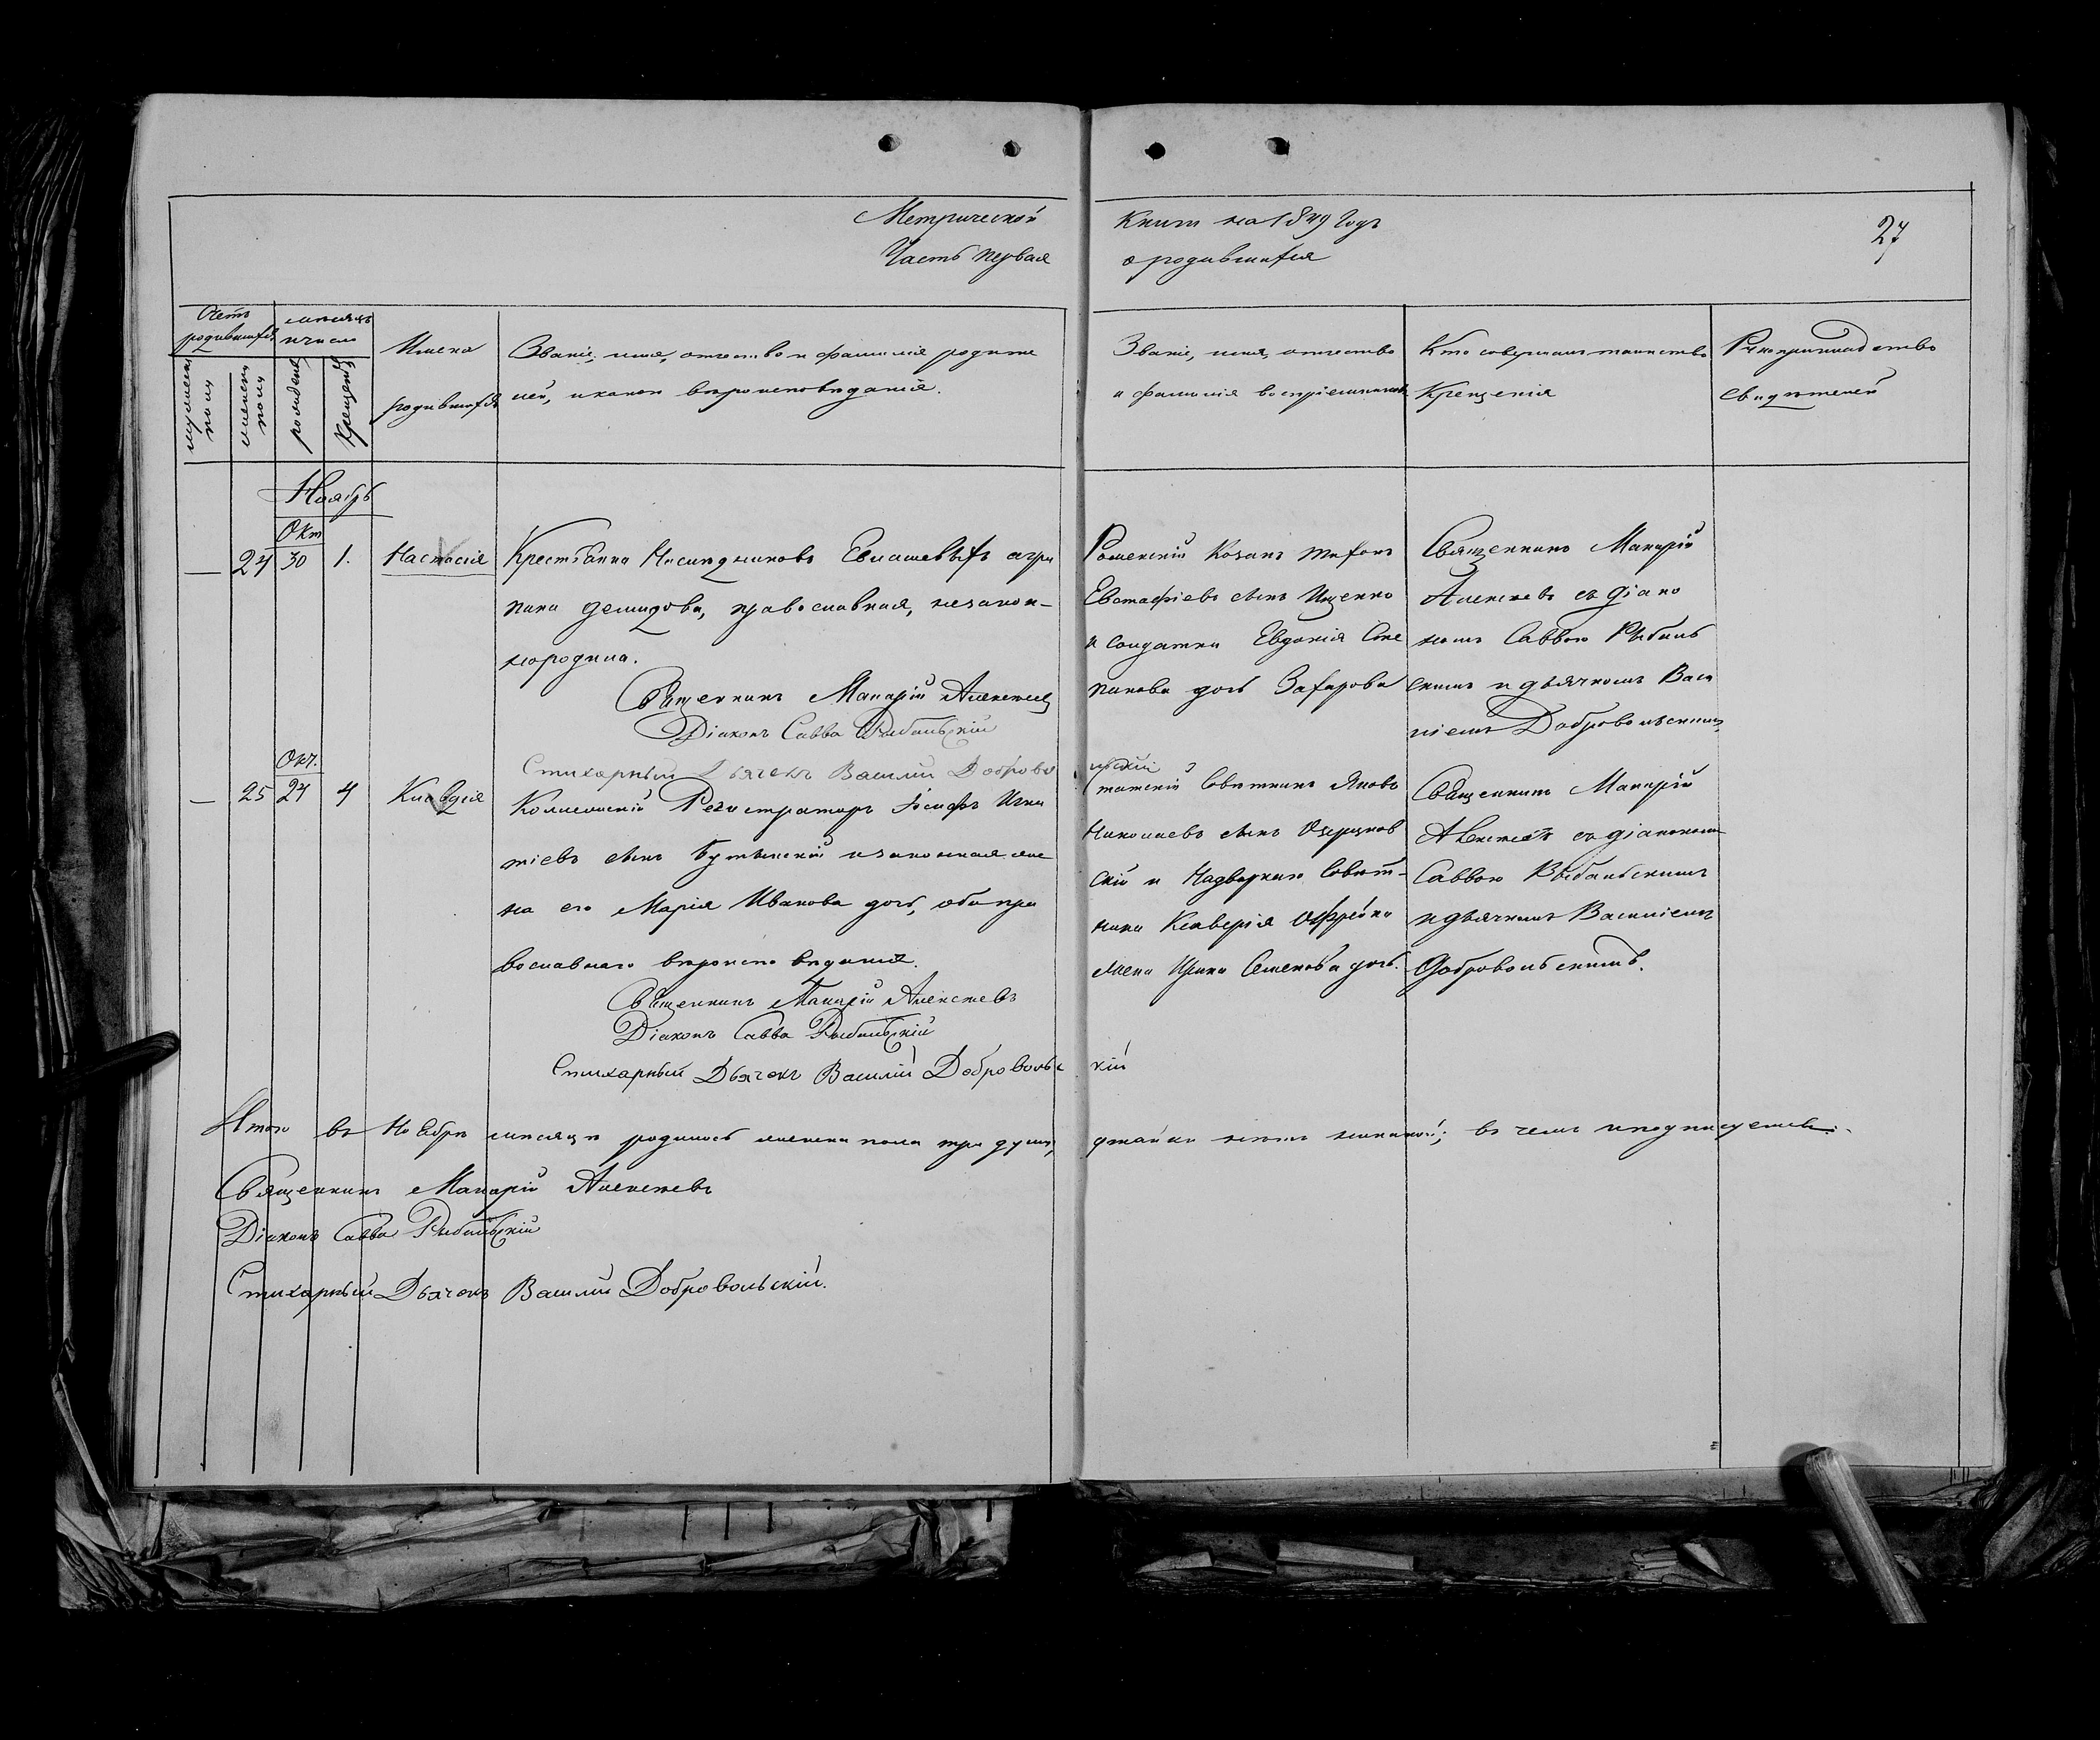 Метрической
Часть первая
Книги на 1849 годъ
о родившихся
27
Счетъ родившихся
мужеска пола
женска пола
месяцъ и число
рожденія
крещенія
Имена родившихся
Званіе, имя, отчество и фамилія родите
лей, и какого вероисповеданія.
Званіе, имя, отчество
и фамилія воспріемниковъ
Кто совершалъ таинство
Крещенія
Рукоприкладство
свидетелей
Ноябрь
Окт
— 24 30 1. Настасія
Крестьянка Наследниковъ Агри
пина Демидова, православная, незакон-
нородила.
Священникъ Макарій Алексеев
Діаконъ Савва Рыбальскій
Стихарный Дьячекъ Василий Доброво
льскій
Роменскій Козакъ
Евстафіевъ сынъ Ищенко
и солдатка Евдокія Сте
панова дочь Захарова
Священникъ Макарій
Алексеевъ съ діако
номъ Саввою Рыбаль
скимъ и дьячкомъ Васи
ліемъ Добровольскимъ
Окт.
— 25 24 4 Клавдія
Колежскій Регистраторъ Іосифъ Игна
тіевъ сынъ и законная же
на его Марія Иванова дочь, оба пра
вославнаго вероисповеданія.
Священникъ Макарій Алексеевъ
Діаконъ Савва Рыбальскій
Стихарный Дьячокъ Василій Добровольс
кій
Советникъ Яковъ
Николаевъ сынъ
скій и Надворнаго Совет-
ника Ксаверія
жена Ирина Семенова дочь.
Священникъ Макарій
Алексеевъ съ діакономъ
Саввою Рыбальскимъ
и дьячкомъ Василіемъ
Добровольскимъ.
Итого въ Ноябре месяце родилось женска пола три души,
двойни нетъ никакой; въ чемъ и подписуемся.
Священникъ Макарій Алексеевъ
Діаконъ Савва Рыбальскій
Стихарный Дьячокъ Василий Добровольскій.